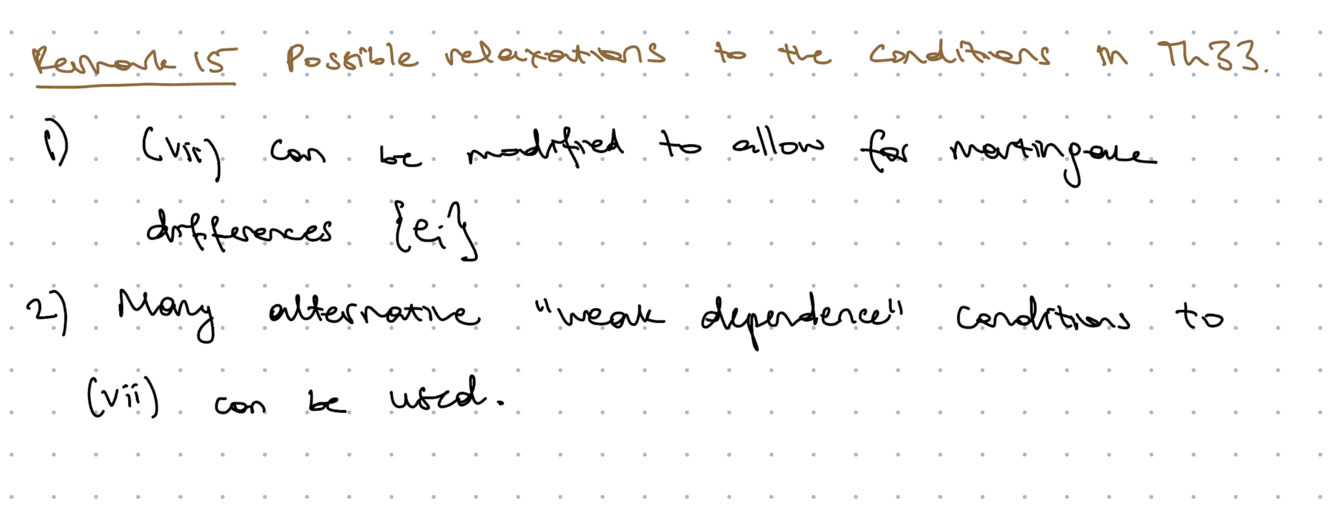 Remark 15 Possible relaxations to the conditions in Th33.
1) (vii) can be modified to allow for martingale
differences {e_i}
2) Many alternative "weak dependence" conditions to
(vii) can be used.